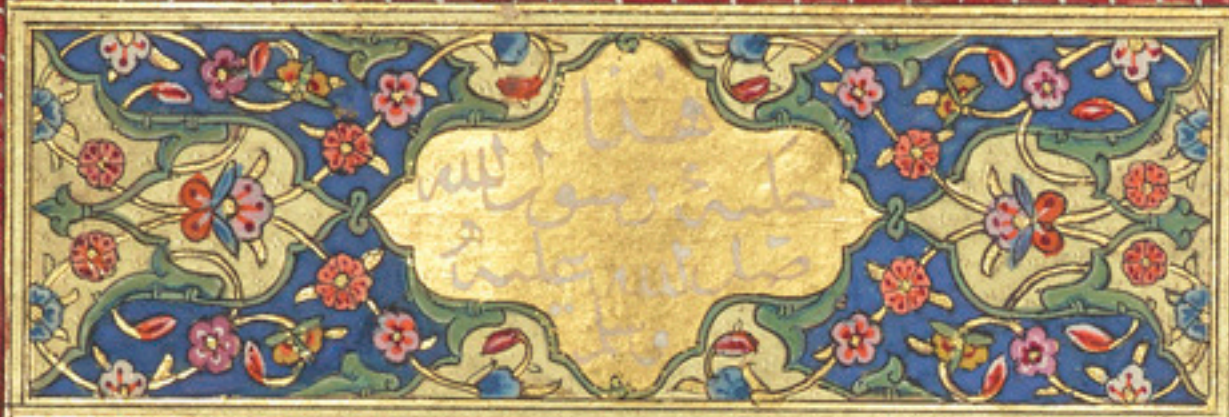 هذا
حلية رسول الله
صلى الله عليه
وسلم